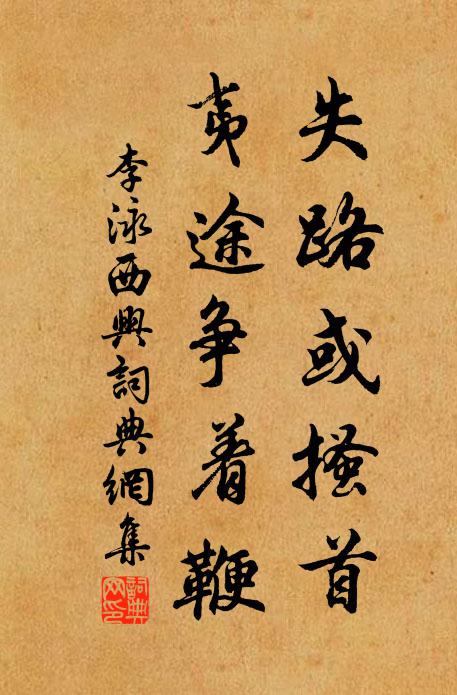 失路或搔首
夷途争着鞭
李泳西興詞典網集
詞典
网印